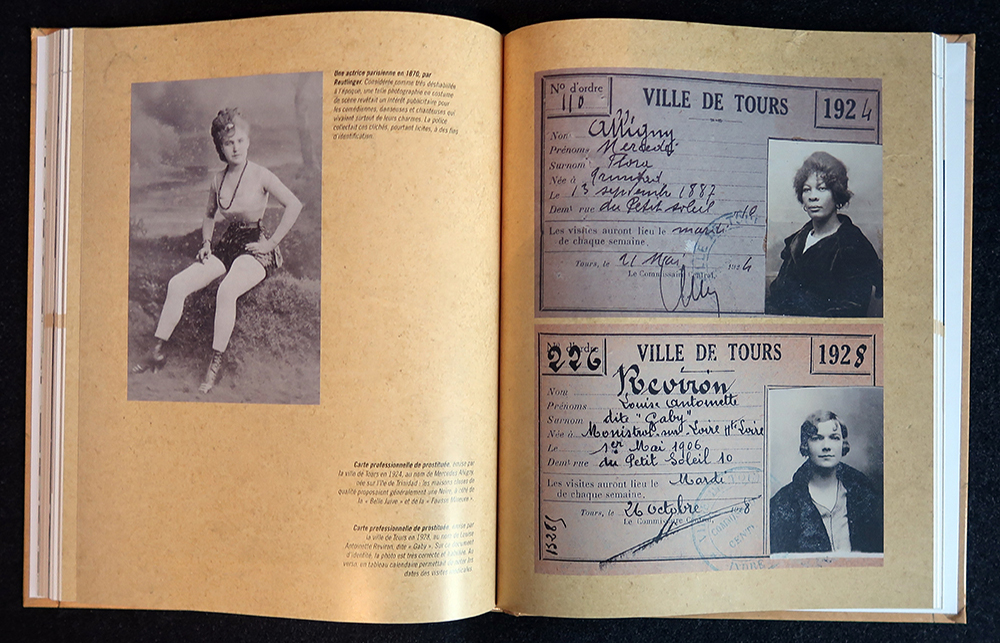 Une actrice parisienne en 1870, par
Reutlinger. Considérée comme très déshabillée
à l'époque, une telle photographie en costume
de scène revêtait un intérêt publicitaire pour
les comédiennes, danseuses et chanteuses qui
vivaient surtout de leurs charmes. La police
collectait ces clichés, pourtant licites, à des fins
d'identification.
Carte professionnelle de prostituée, émise par
la ville de Tours en 1924, au nom de Mercedes Alligny,
née sur l'île de Trinidad : les maisons closes de
qualité proposaient généralement une Noire, à côté de
la « Belle Juive » et de la
Carte professionnelle de prostituée, émise par
la ville de Tours en 1928, au nom de Louise
Antoinette Reviron, dite « Gaby ». Sur ce document
d'identité, la photo est très correcte et habillée. Au
verso, un tableau calendaire permettait de noter les
dates des visites médicales.
No d'ordre
110
VILLE DE TOURS
1924
Nom Alligny
Prénoms Mercedes
Surnom Flora
Née à
Le 13 septembre 1882
Demt rue du Petit soleil
Les visites auront lieu le mardi
de chaque semaine.
Tours, le 21 Mai 1924
Le Commissaire Central,
No d'ordre
226
VILLE DE TOURS
1928
Nom Reviron
Prénoms Louise Antoinette
Surnom dite "Gaby"
Née à Monistrol sur Loire Hte Loire
Le 1er Mai 1906
Demt rue du Petit Soleil 10
Les visites auront lieu le Mardi
de chaque semaine.
Tours, le 26 octobre 1928
Le Commissaire Central,